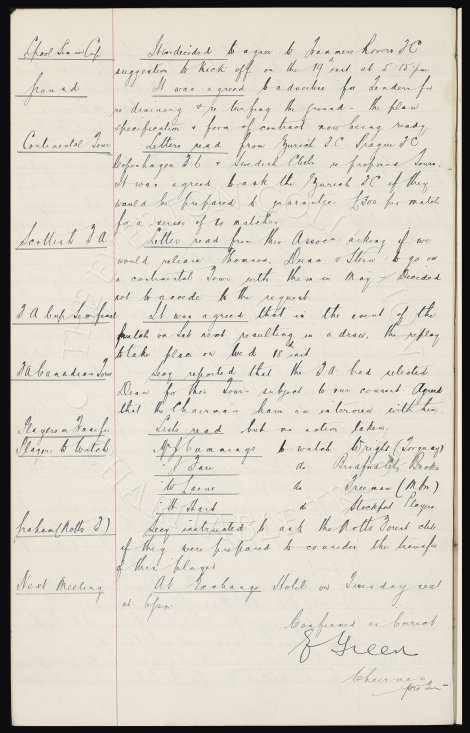 L'pool Senior Cup It was decided to agree to Tranmere Rovers F C
suggestion to kick off on the 19th inst at 5.15 pm
Ground It was agreed to advertise for Tenders for
re draining & re turfing the ground - the plan
specification & form of contract now being ready
Continental Tour Letters read from Zurich F.C. Prague F C
Copenhagen F C & Swedish Clubs re proposed Tours.
It was agreed to ask the Zurich F C if they
would be prepared to guarantee £300 per match
for a series of matches
Scottish F A Letter read from this Assocn asking if we
would release Thomson, Dunn & Stein to go on
a continental Tour with them in May - Decided
not to accede to the request
F A Cup semi final It was agreed that in the event of the
match on Sat next resulting in a draw, the replay
to take place on Wed 18th inst
F A Canadian Tour Secy reported that the F A had selected
Dean for this Tour subject to our consent. Agreed
that the Chairman have an interview with him
Players on Transfer Lists read but no action taken
Players to Watch Mr J Cummings to watch Wright (Torquay)
" do Bradford City
" W do Freeman (
" H do Stockport Players
Graham (Notts F) Secy instructed to ask the Notts Forest club
if they were prepared to consider the transfer
of this player
Next Meeting At Exchange Hotel on Tuesday next
at 6pm
Confirmed as Correct
E Green
Chairman
pro tem